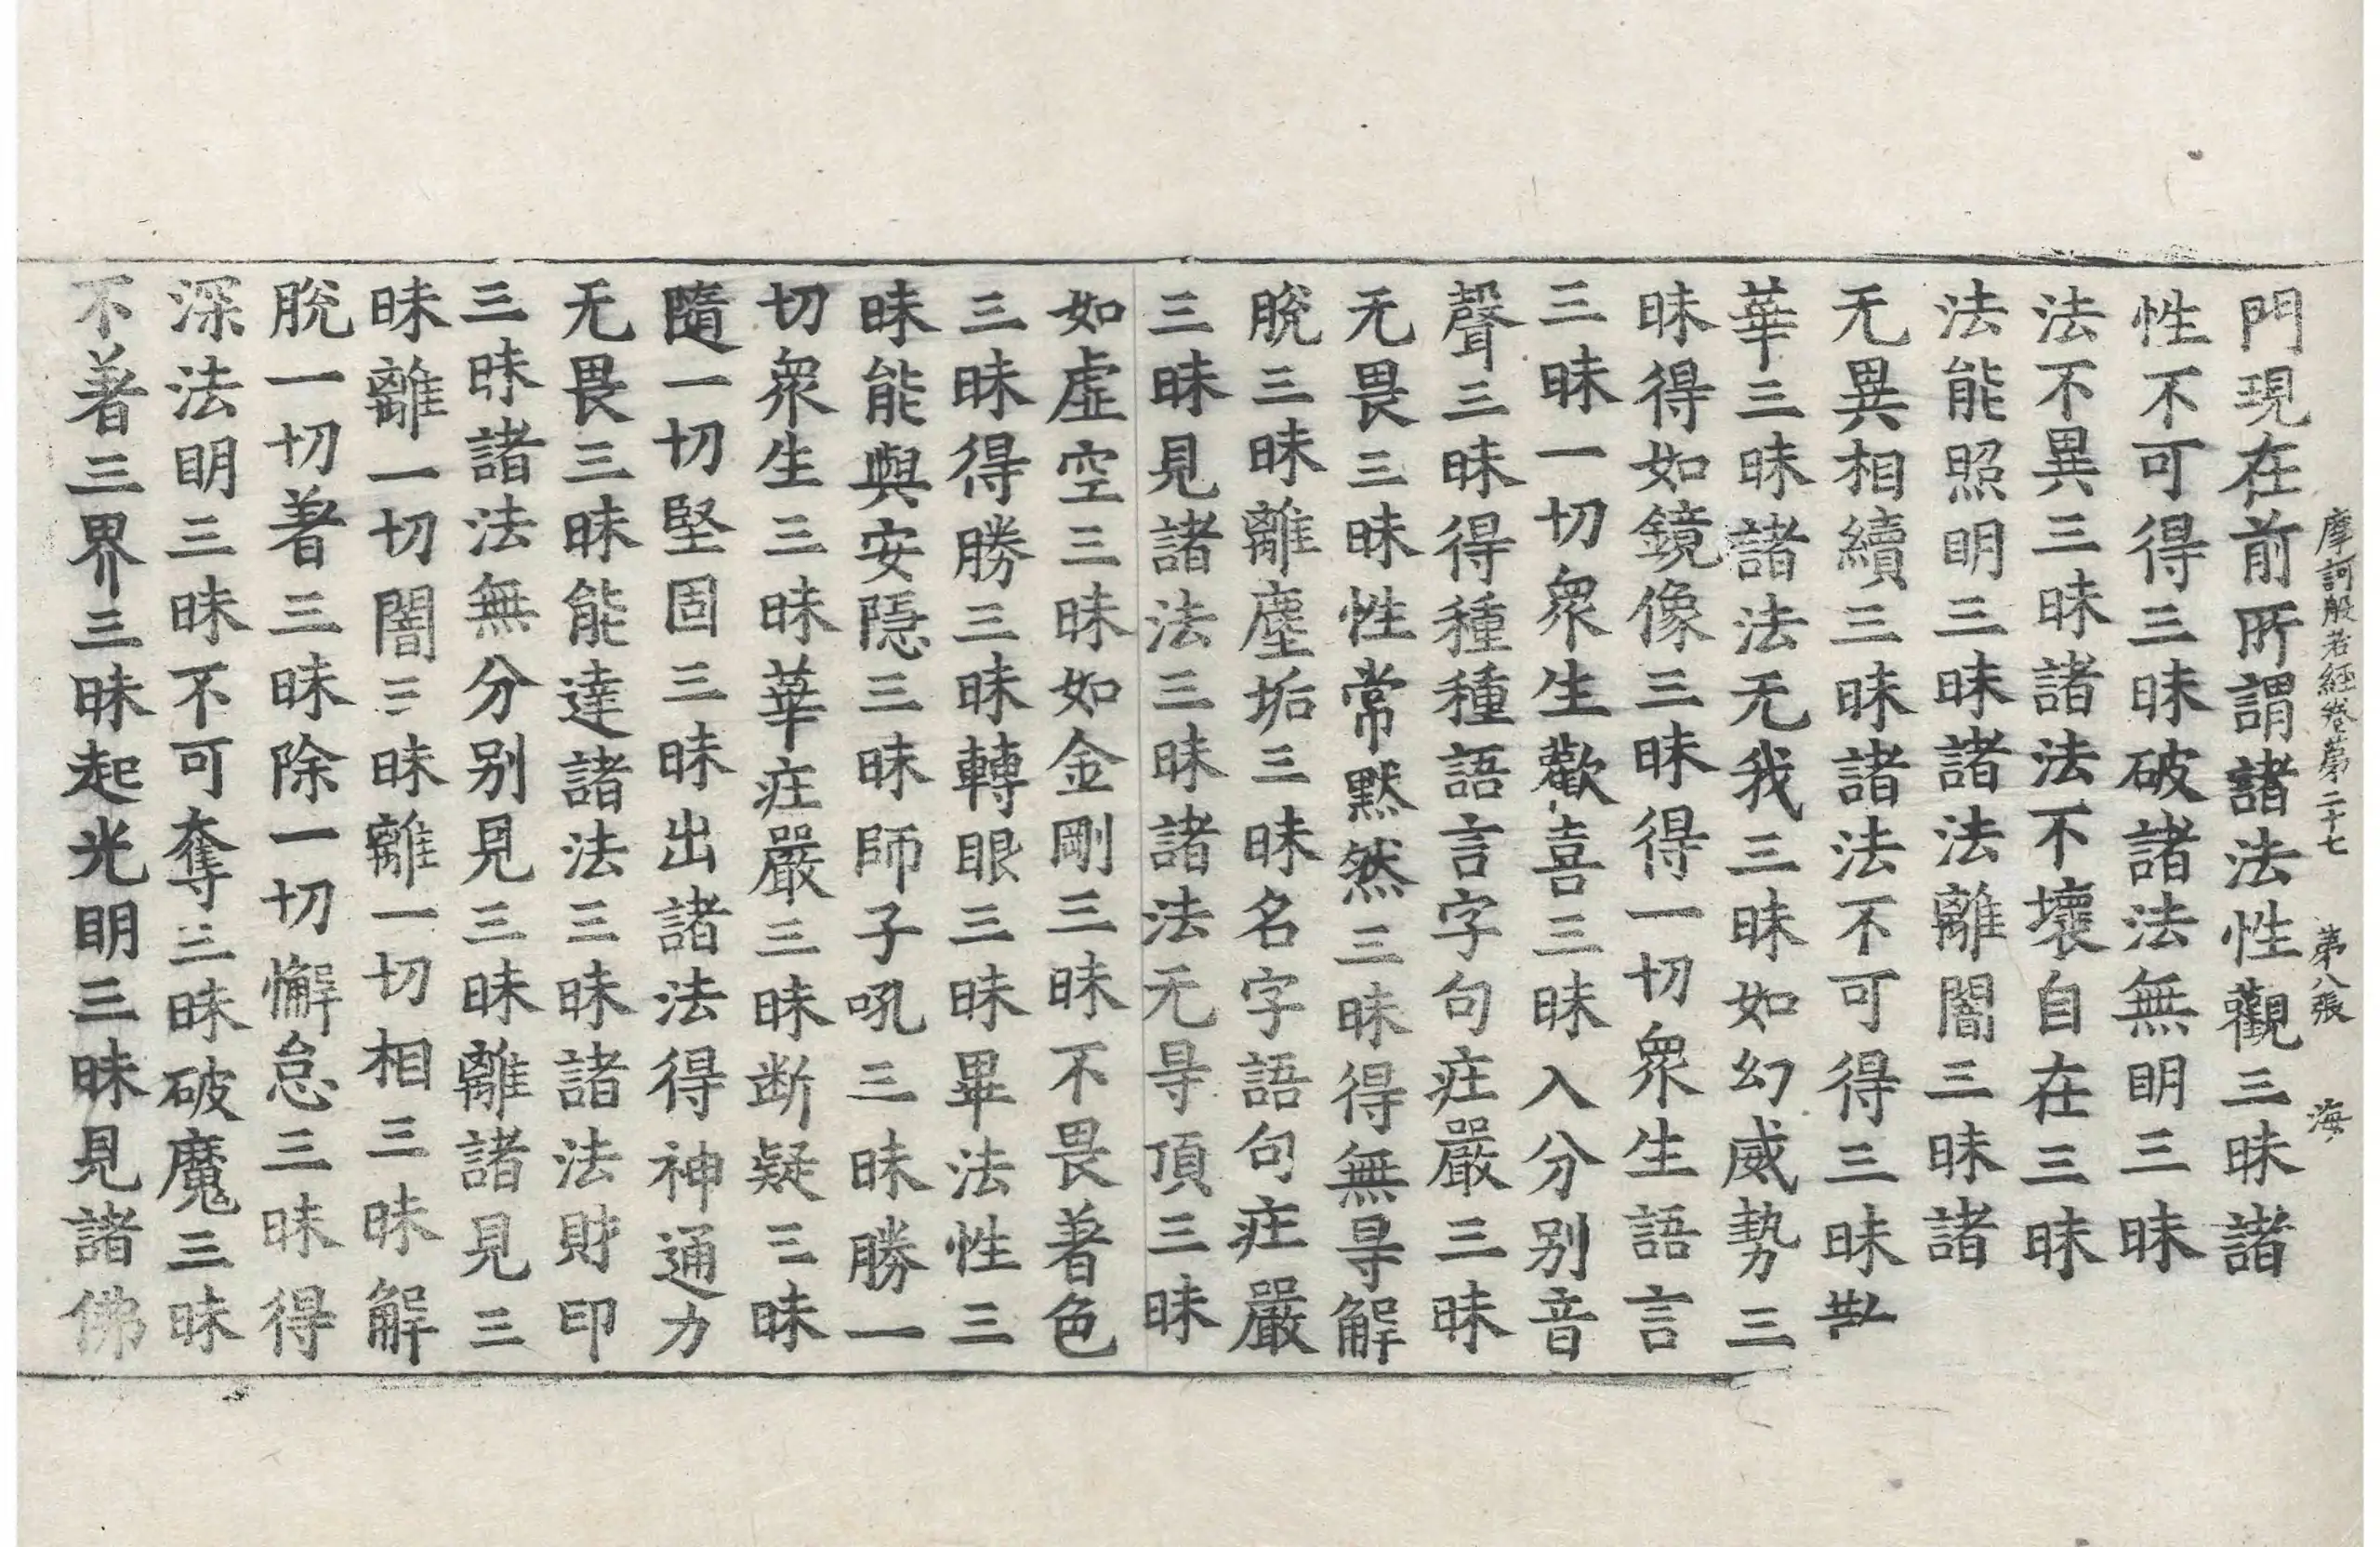 摩訶般若經卷第二十七　第八張　海
門現在前所謂諸法性觀三昧諸
性不可得三昧破諸法無明三昧
法不異三昧諸法不壞自在三昧
法能照明三昧諸法離闇三昧諸
无異相續三昧諸法不可得三昧散
華三昧諸法无我三昧如幻威勢三
昧得如鏡像三昧得一切衆生語言
三昧一切衆生歡喜三昧入分別音
聲三昧得種種語言字句莊嚴三昧
无畏三昧性常默然三昧得無㝵解
脫三昧離塵垢三昧名字語句莊嚴
三昧見諸法三昧諸法无㝵頂三昧
如虛空三昧如金剛三昧不畏著色
三昧得勝三昧轉眼三昧畢法性三
昧能與安隱三昧師子吼三昧勝一
切衆生三昧華莊嚴三昧断疑三昧
隨一切堅固三昧出諸法得神通力
无畏三昧能達諸法三昧諸法財印
三昧諸法無分別見三昧離諸見三
昧離一切闇三昧離一切相三昧解
脫一切著三昧除一切懈怠三昧得
深法明三昧不可奪三昧破魔三昧
不著三界三昧起光明三昧見諸佛